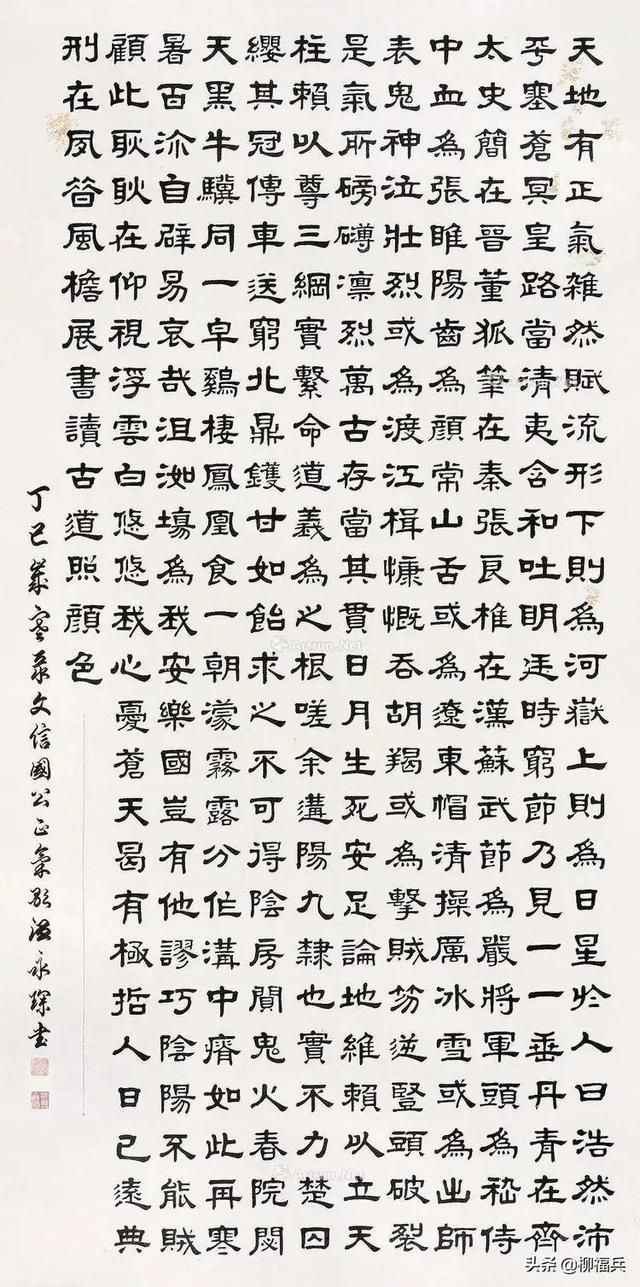 天地有正氣雜然賦流形下則為河嶽上則為日星於人曰浩然沛
乎塞蒼冥皇路當清夷含和吐明廷時窮節乃見一一垂丹青在齊
太史簡在晉董狐筆在秦張良椎在漢蘇武節為嚴將軍頭為嵇侍
中血為張睢陽齒為顏常山舌或為遼東帽清操厲冰雪或為出師
表鬼神泣壯烈或為渡江楫慷慨吞胡羯或為擊賊笏逆豎頭破裂
是氣所磅礴凛烈萬古存當其貫日月生死安足論地維賴以立天
柱賴以尊三綱實繫命道義為之根嗟余遘陽九隸也實不力楚囚
纓其冠傳車送窮北鼎鑊甘如飴求之不可得陰房闃鬼火春院閟
天黑牛驥同一皁鷄棲鳳凰食一朝濛霧露分作溝中瘠如此再寒
暑百沴自辟易哀哉沮洳場為我安樂國豈有他謬巧陰陽不能賊
顧此耿耿在仰視浮雲白悠悠我心憂蒼天曷有極哲人日已遠典
刑在夙昔風檐展書讀古道照顏色
丁巳歲寒录文信國公正氣歌溫永琛書
Artron.Net
头条 @柳福兵